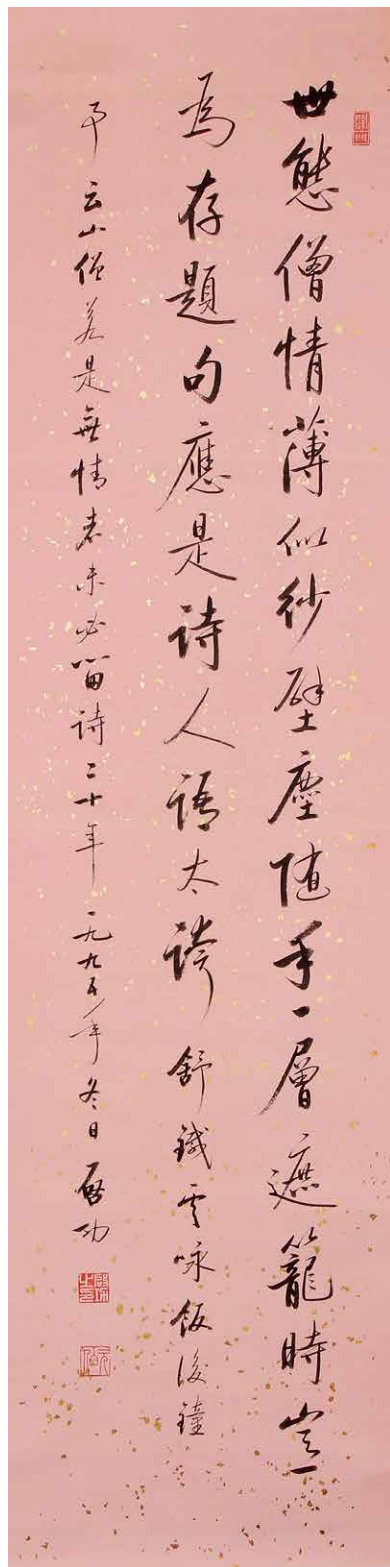 世態僧情薄似紗壁塵随手一層遮籠時豈
為存題句應是詩人語太誇舒鐵雲咏飯後鐘
事云山僧若是無情者未必留詩二十年一九九五年冬日啓功
啓功之印
元白